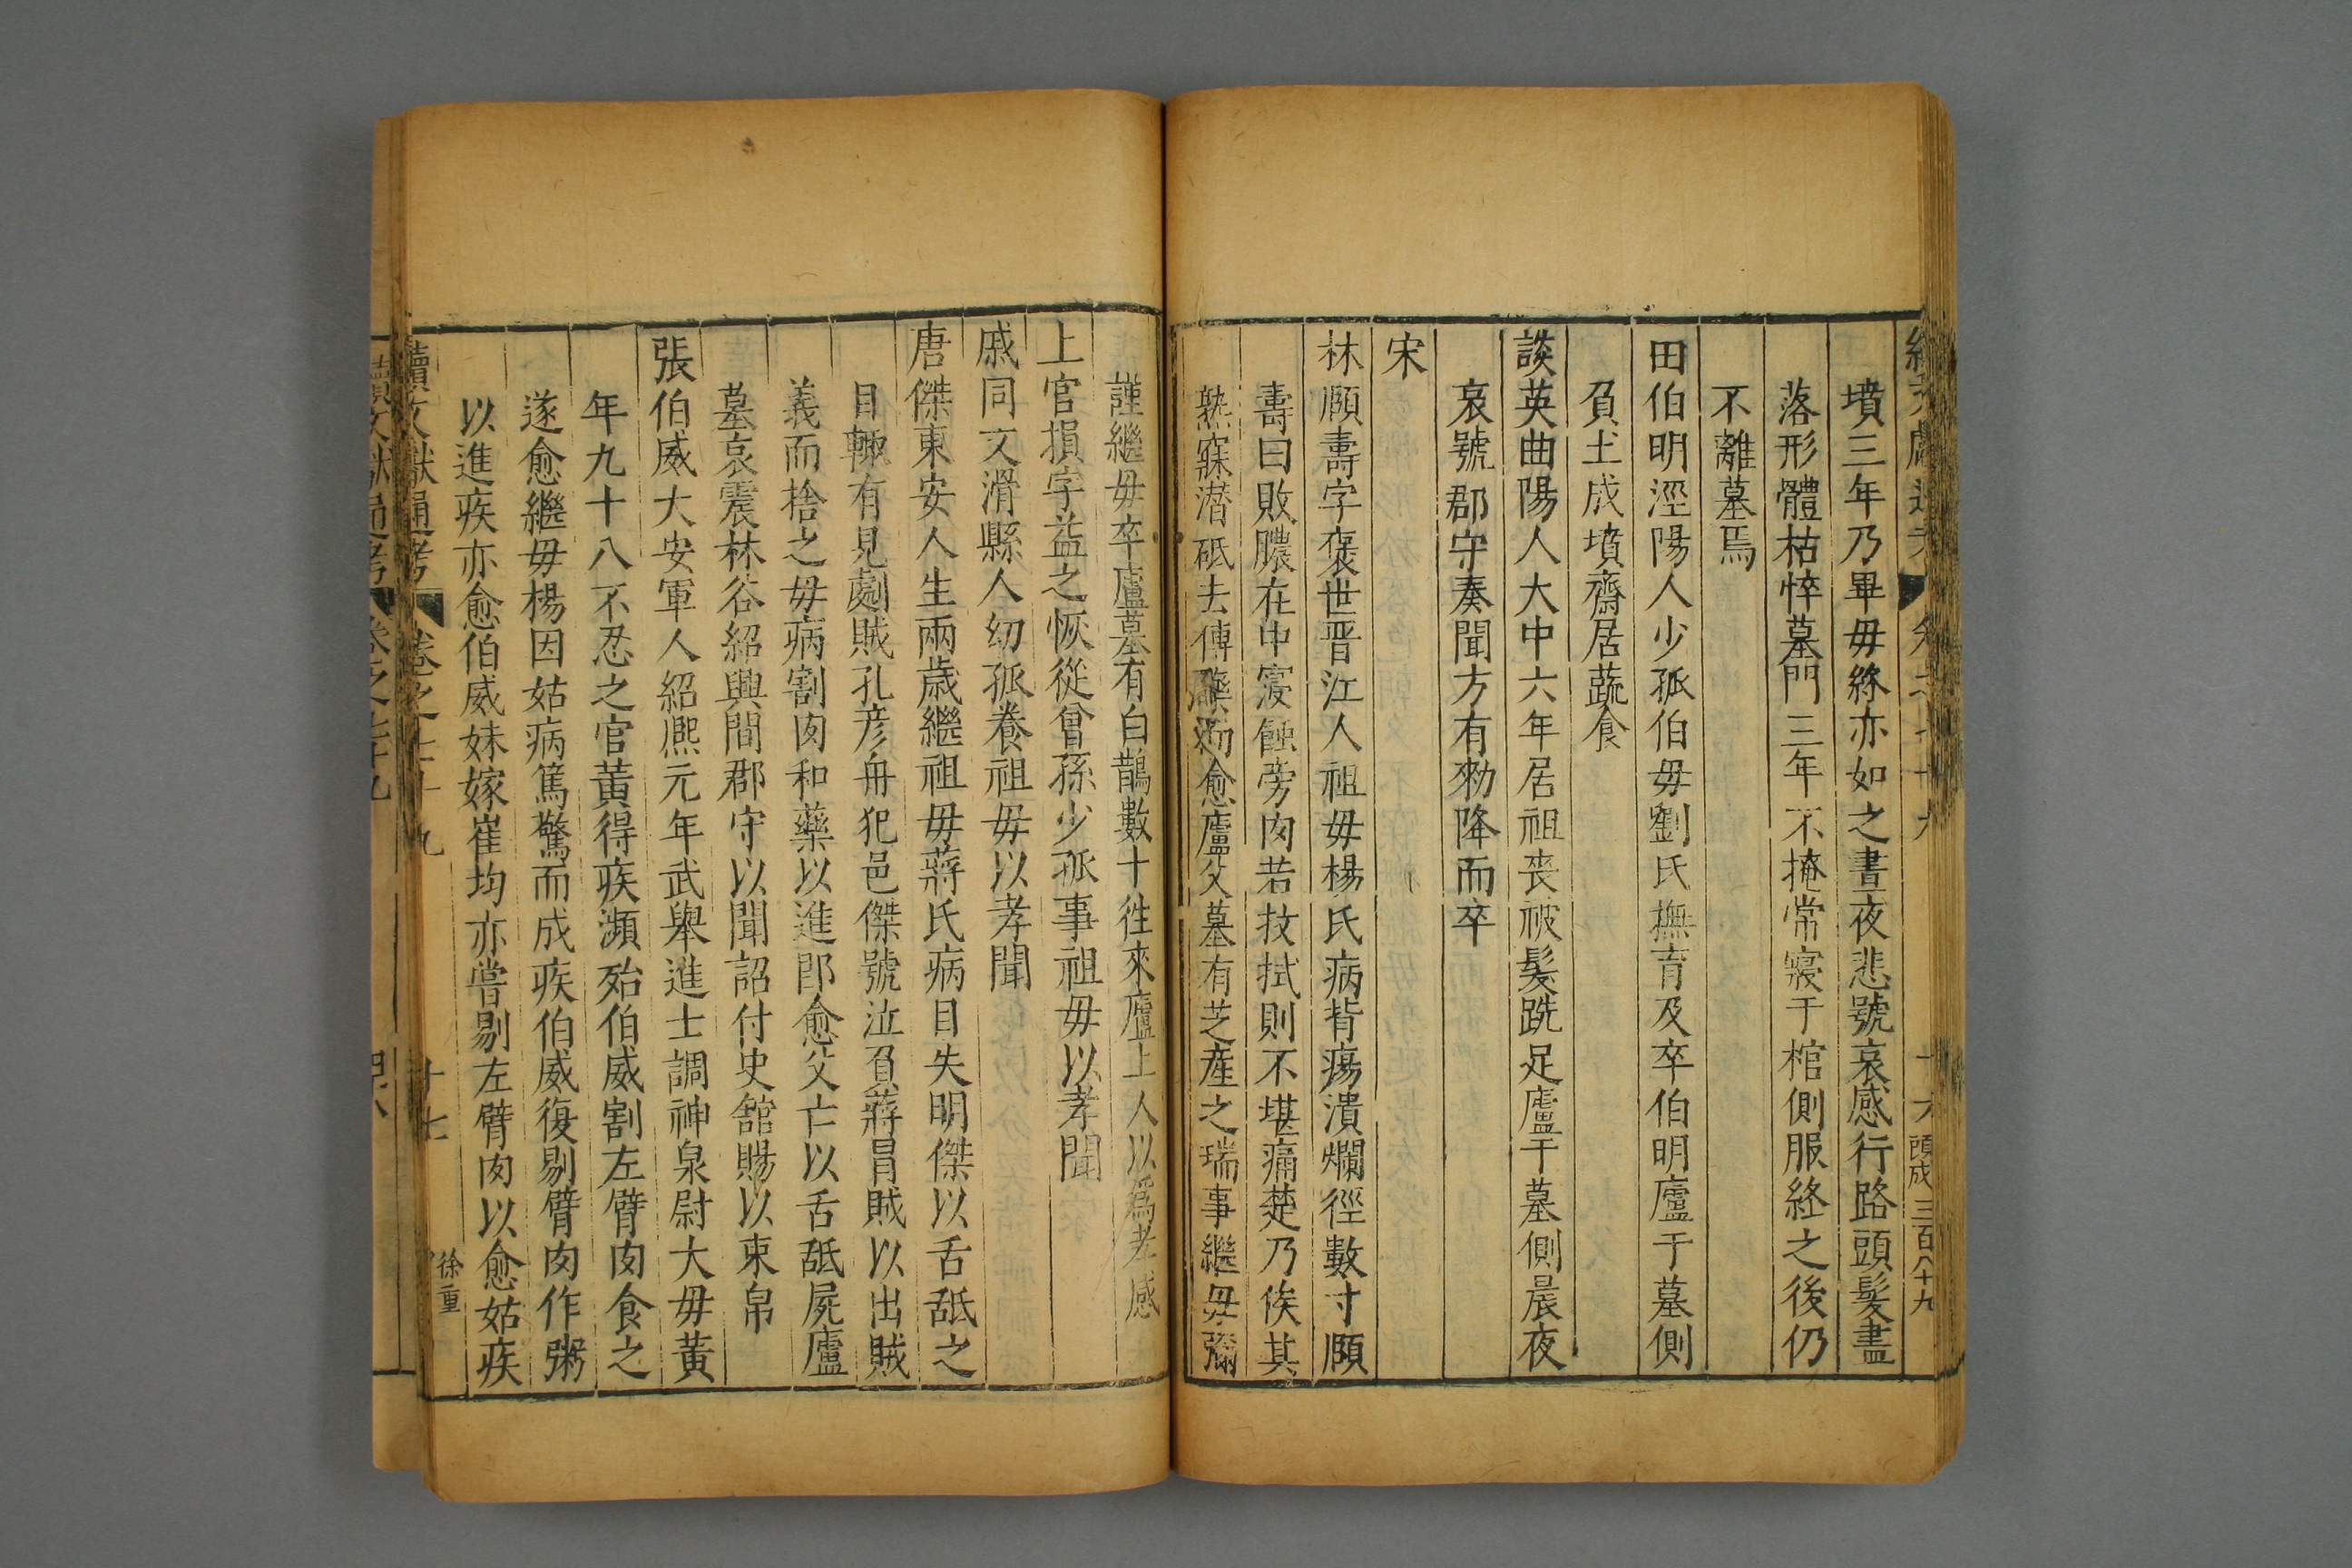 墳三年乃畢毋終亦如之晝夜悲號哀感行路頭髮盡
落形體枯悴墓門三年不掩常寢于棺側服終之後仍
不離墓焉
田伯明涇陽人少孤伯毋劉氏撫育及卒伯明廬于墓側
負土成墳齋居蔬食
談英曲陽人大中六年居祖喪被髮跣足廬于墓側晨夜
哀號郡守奏聞方有勑降而卒
宋
林頤壽字褒世晋江人祖毋楊氏病背瘍潰爛徑數寸頤
壽曰敗膿在中寖蝕旁肉若抆拭則不堪痛楚乃俟其
熟寐潛砥去傅藥而愈廬父墓有芝產之瑞事繼毋彌
謹繼毋卒廬墓有白鵲數十徃來廬上人以爲孝感
上官損字益之恢從曾孫少孤事祖毋以孝聞
戚同文滑縣人幼孤養祖毋以孝聞
唐傑東安人生兩歲繼祖毋蔣氏病目失明傑以舌舐之
目輙有見劇賊孔彦舟犯邑傑號泣負蔣冒賊以出賊
義而捨之毋病割肉和藥以進即愈父亡以舌舐屍廬
墓哀震林谷紹興間郡守以聞詔付史舘賜以束帛
張伯威大安軍人紹熈元年武舉進士調神泉尉大毋黃
年九十八不忍之官黃得疾瀕殆伯威割左臂肉食之
遂愈繼毋楊因姑病篤驚而成疾伯威復剔臂肉作粥
以進疾亦愈伯威妹嫁崔均亦甞剔左臂肉以愈姑疾
續文獻通考
卷之七十九
十七
徐重